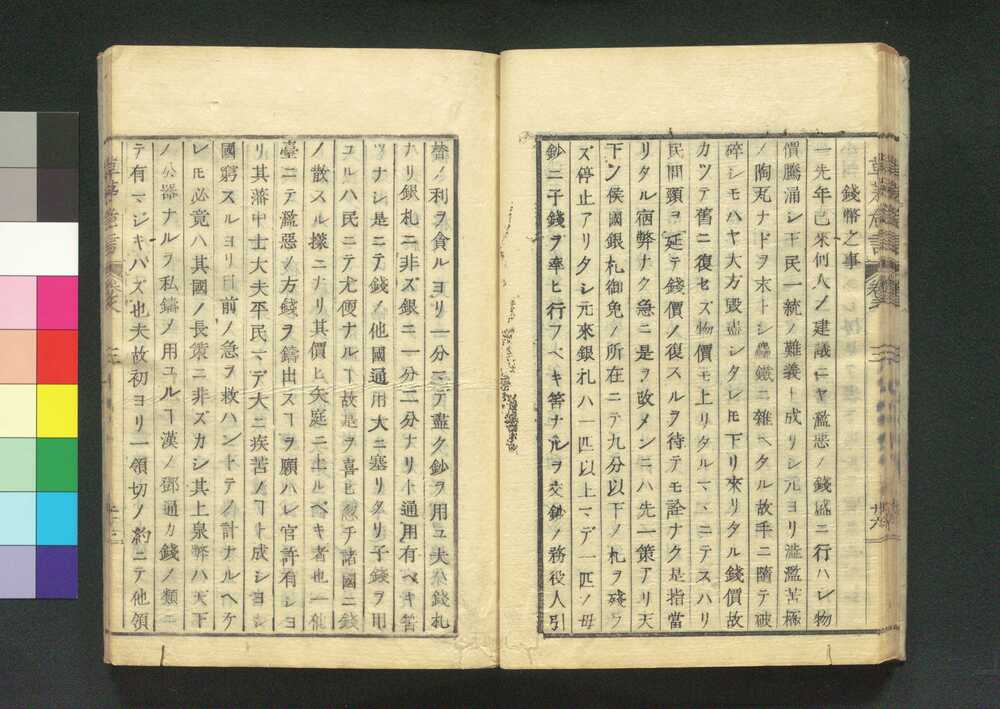 錢幣之事
一先年已來何人ノ建議ニヤ濫惡ノ錢盛ニ行ハレ物
價騰涌シ下民一統ノ難義ト成リシ元ヨリ濫苦極
ノ陶瓦ナドヲ末トシ鐵ニ雜ヘタル故手ニ墮テ破
碎シモハヤ大方毀盡シタレ𪜈下リ來リタル錢價故
カツテ舊ニ復セズ物價モ上リタルマヽニテスハリ
民間頸ヲ延テ錢價ノ復スルヲ待テモ詮ナク是指當
リタル宿弊ナク急ニ是ヲ改メンニハ先一策アリ天
下ノ侯國銀札御免ノ所在ニテ九分以下ノ札ヲ殘ラ
ズ停止アリタシ元來銀札ハ一匹以上マデ一匹ノ母
鈔ニ子錢ヲ奉ヒ行フベキ筈ナルヲ交鈔ノ務役人引
替ノ利ヲ貪ルヨリ一分マデ盡ク鈔ヲ用ユ夫錢札
ナリ銀札ニ非ズ銀ニ一分二分ナリト通用有ベキ筈
ツナシ是ニテ錢ノ他國通用大ニ塞リタリ子錢ヲ用
ユルハ民ニテ尤便ナルヿ故是ヲ喜ヒ忽チ諸國ニ錢
ノ散スル樣ニナリ其價ヒ矢庭ニ上ルベキ者也一仙
臺ニテ濫惡ノ方錢ヲ鑄出スヿヲ願ハレ官許有シヨ
リ其藩中士大夫平民マデ大ニ疾苦ノヿト成シヨシ
國窮スルヨリ目前ノ急ヲ救ハントテノ計ナルヘケ
レ𪜈必竟ハ其國ノ長策ニ非ズカシ其上泉幣ハ天下
ノ公器ナルヲ私鑄ノ用ユルヿ漢ノ鄧通カ錢ノ類ニ
テ有マジキハズ也夫故初ヨリ一領切ノ約ニテ他領